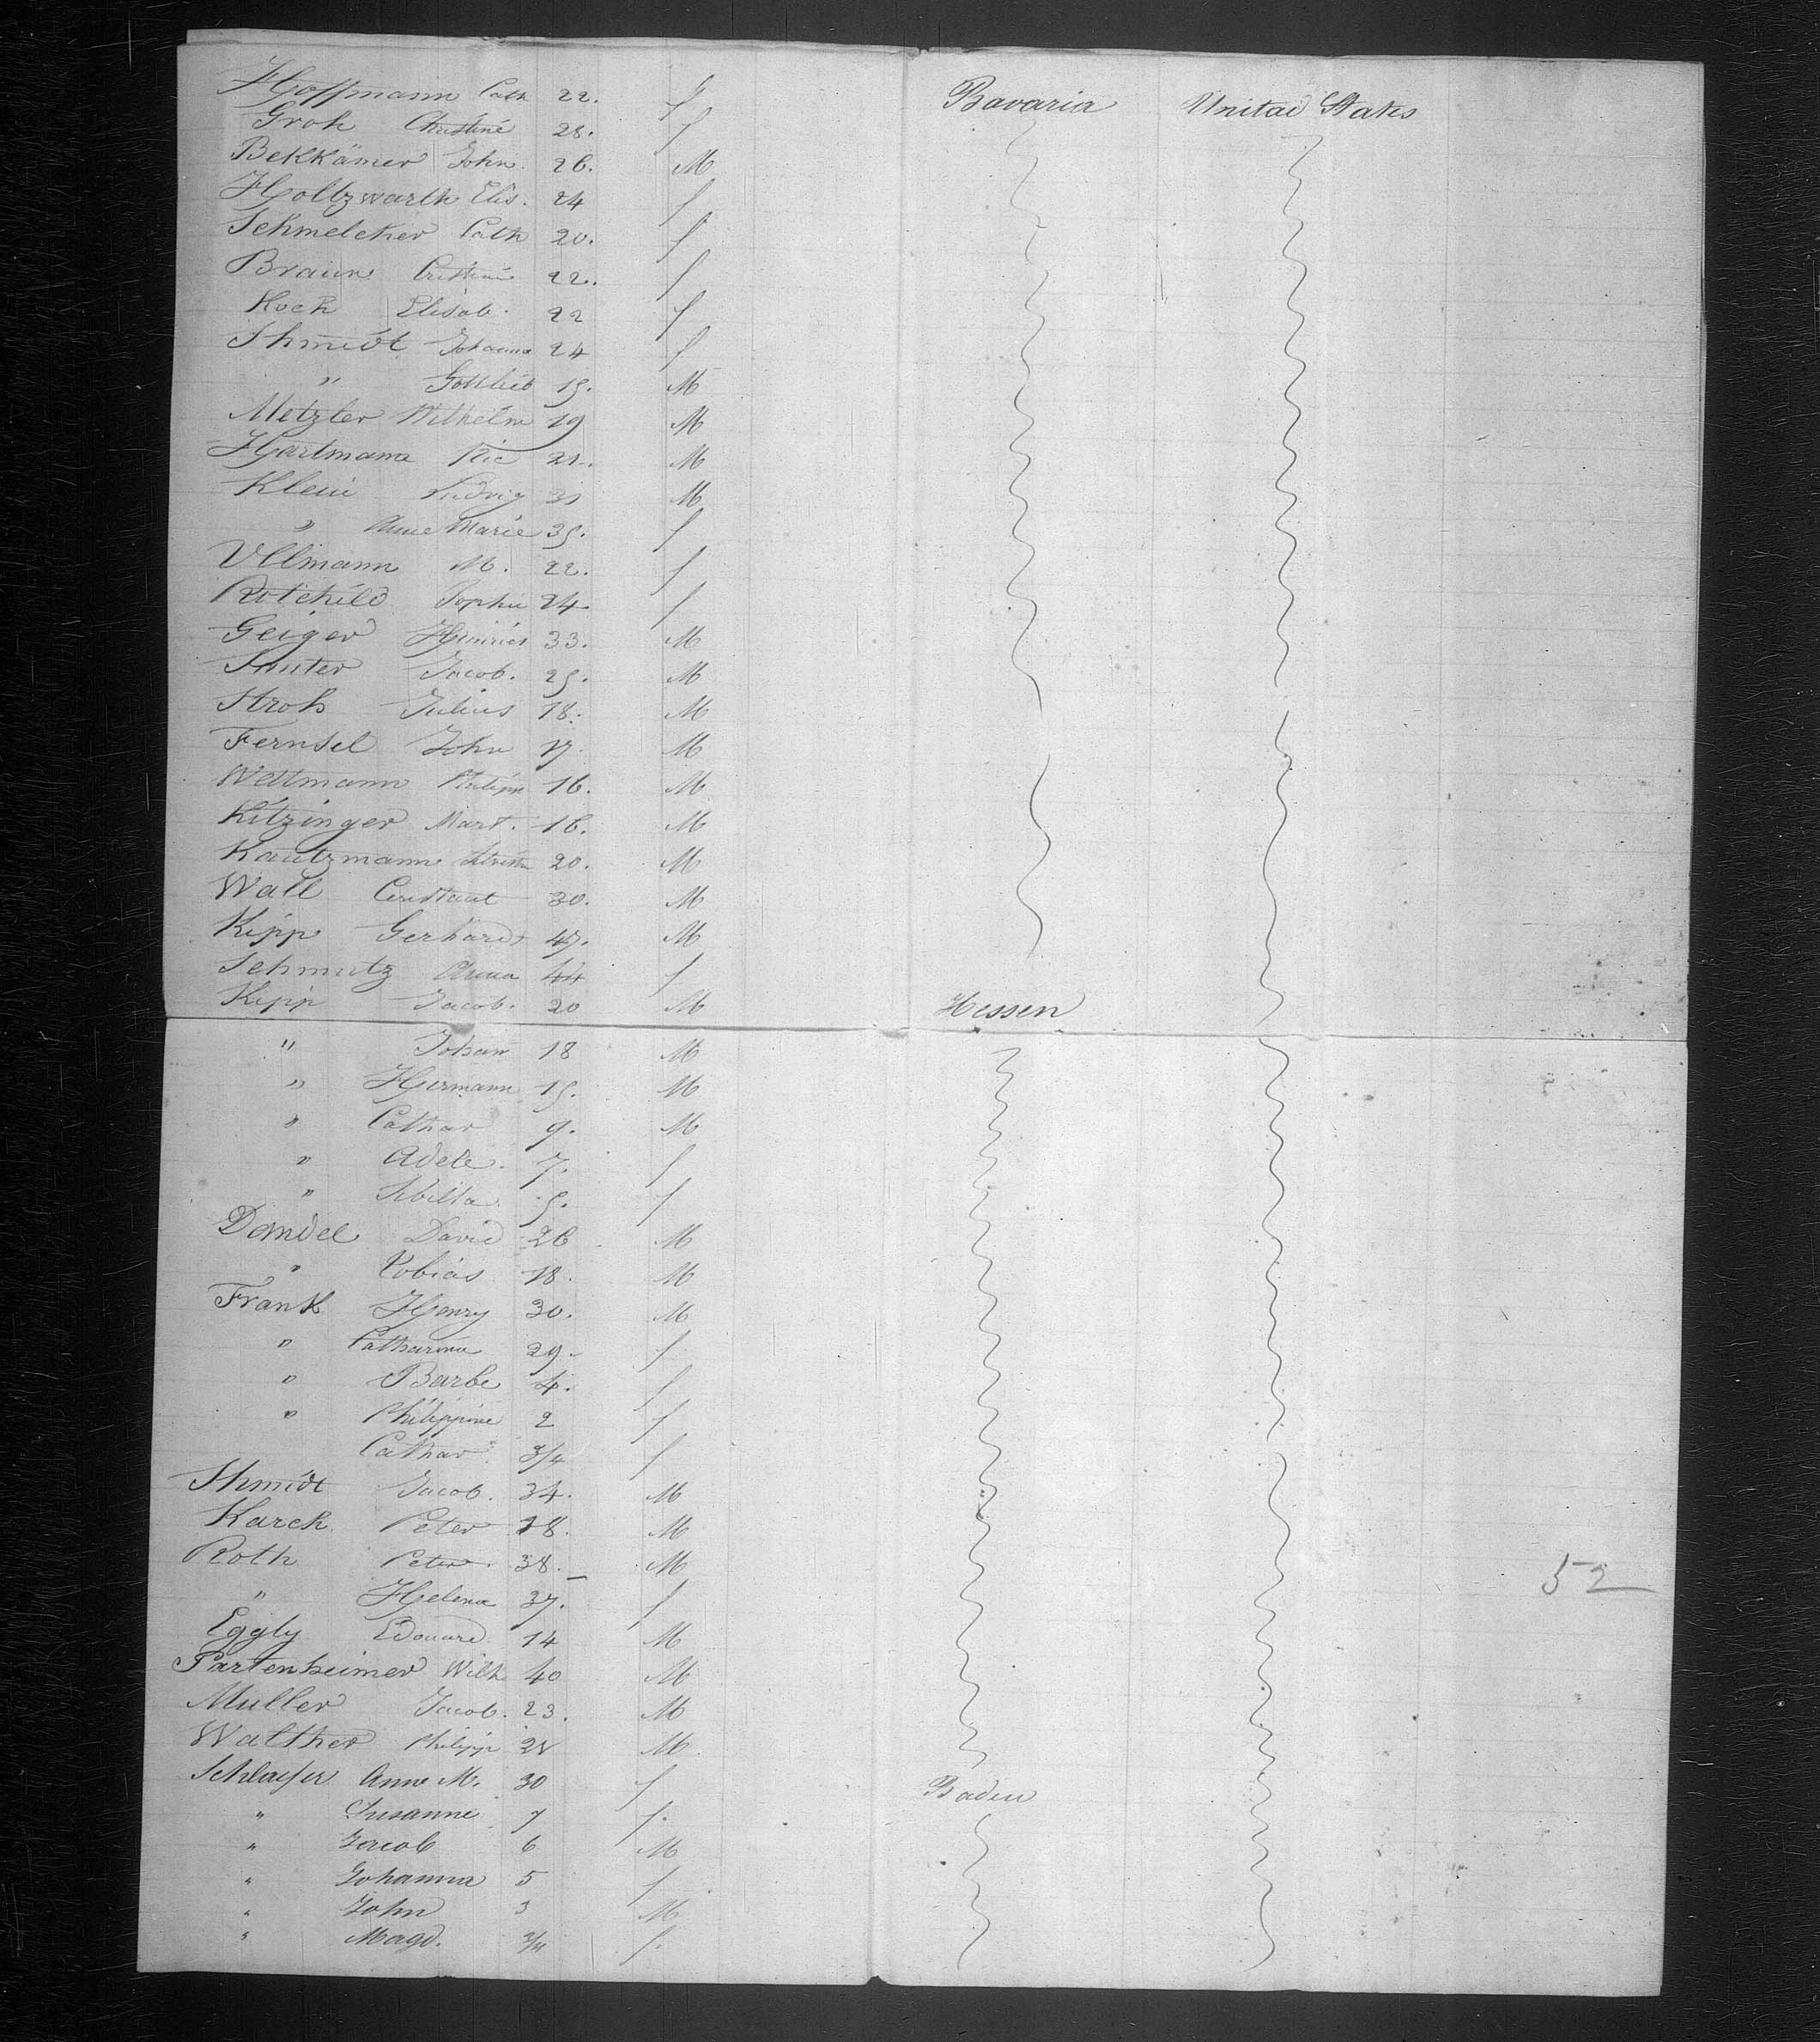 Hoffmann Cath 22. f Bavaria Unitad States
Groh Christine 28. f
Bekkämer John. 26. M
Holtzwarth Elis. 24 f
Schmelcher Cath 20. f
Braun Cristine 22. f
Koch Elisab. 22 f
Shmidt Johanna 24 f
" Gottlieb 15. M
Metzler Wilhelm 19 M
Hartmann Nic 21. M
Klein Ludvig 31 M
" Anne Marie 35. f
Ullmann M. 22. f
Rotchild Sophie 24. f
Geiger Heinrich 33. M
Sauter Jacob. 25. M
Stroh Julius 18. M
Fernsel John 17. M
Weltmann Philipp 16. M
Kitzinger Mart. 16. M
Kautzmann 20. M
Wall Constant 30. M
Kipp Gerhard 47. M
Schmutz Anna 44 f
Kipp Jacob. 20 M Hessen
" Johan 18 M
" Hermann 15. M
" Cathar 9. M
" Adele. 7. f
" Sibilla 5. f
Dandel David 26 M
" Tobias 18. M
Frank Henry 30. M
" Catharina 29. f
" Barbe 4. f
" Philippine 2 f
Cathar 3/4 f
Shmidt Jacob. 34. M
Karch Peter 18. M
Roth Peter. 38. M 52
" Helena 37. f
Eggly Edouard 14 M
Partenheimer Wilh 40 M
Muller Jacob. 23. M
Walther Philipp 21 M
Schlaefer Anne M. 30 f Baden
" Susanne 7 f.
" Jacob 6 M
" Johanna 5 f
" John 3 M
" Magd. f.